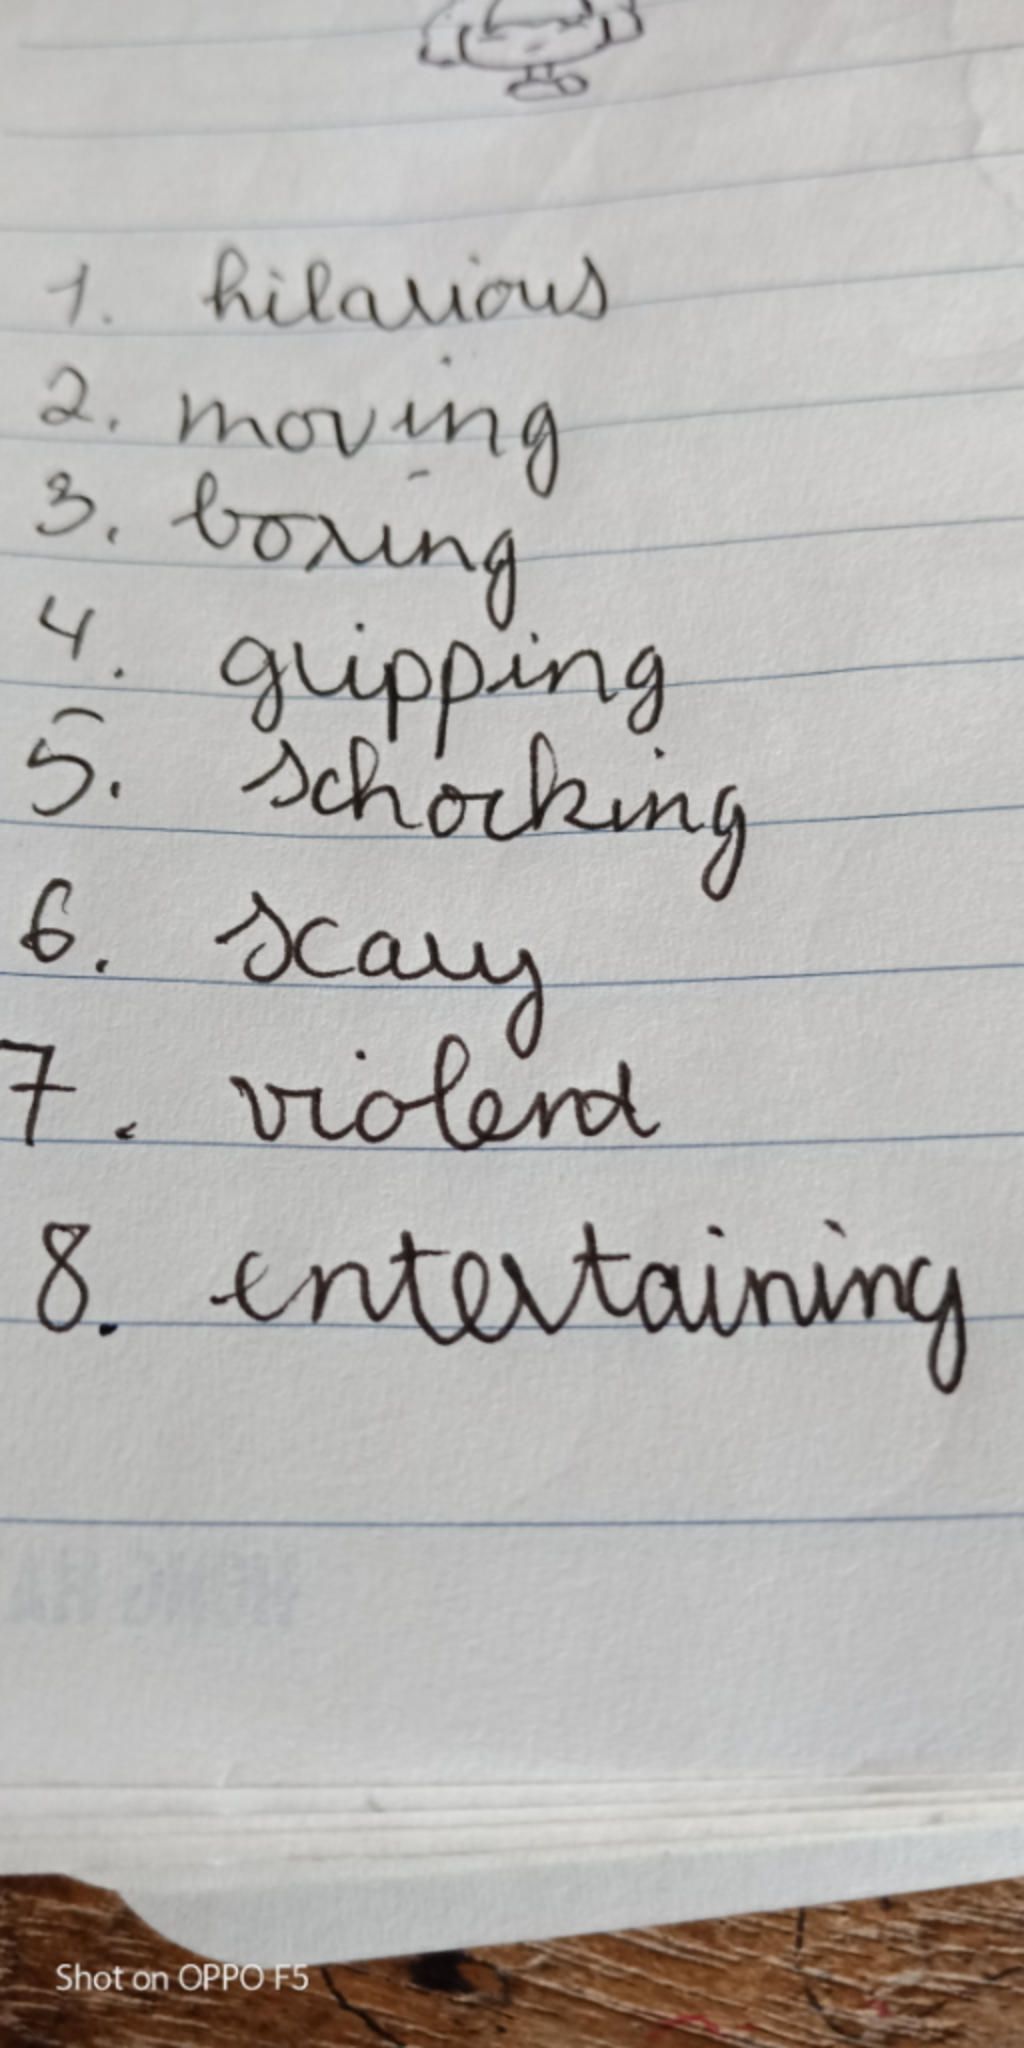 1. hilarious
2. moving
3. boxing
4. gripping
5. schocking
6. scary
7. violend
8. entertaining
Shot on OPPO F5